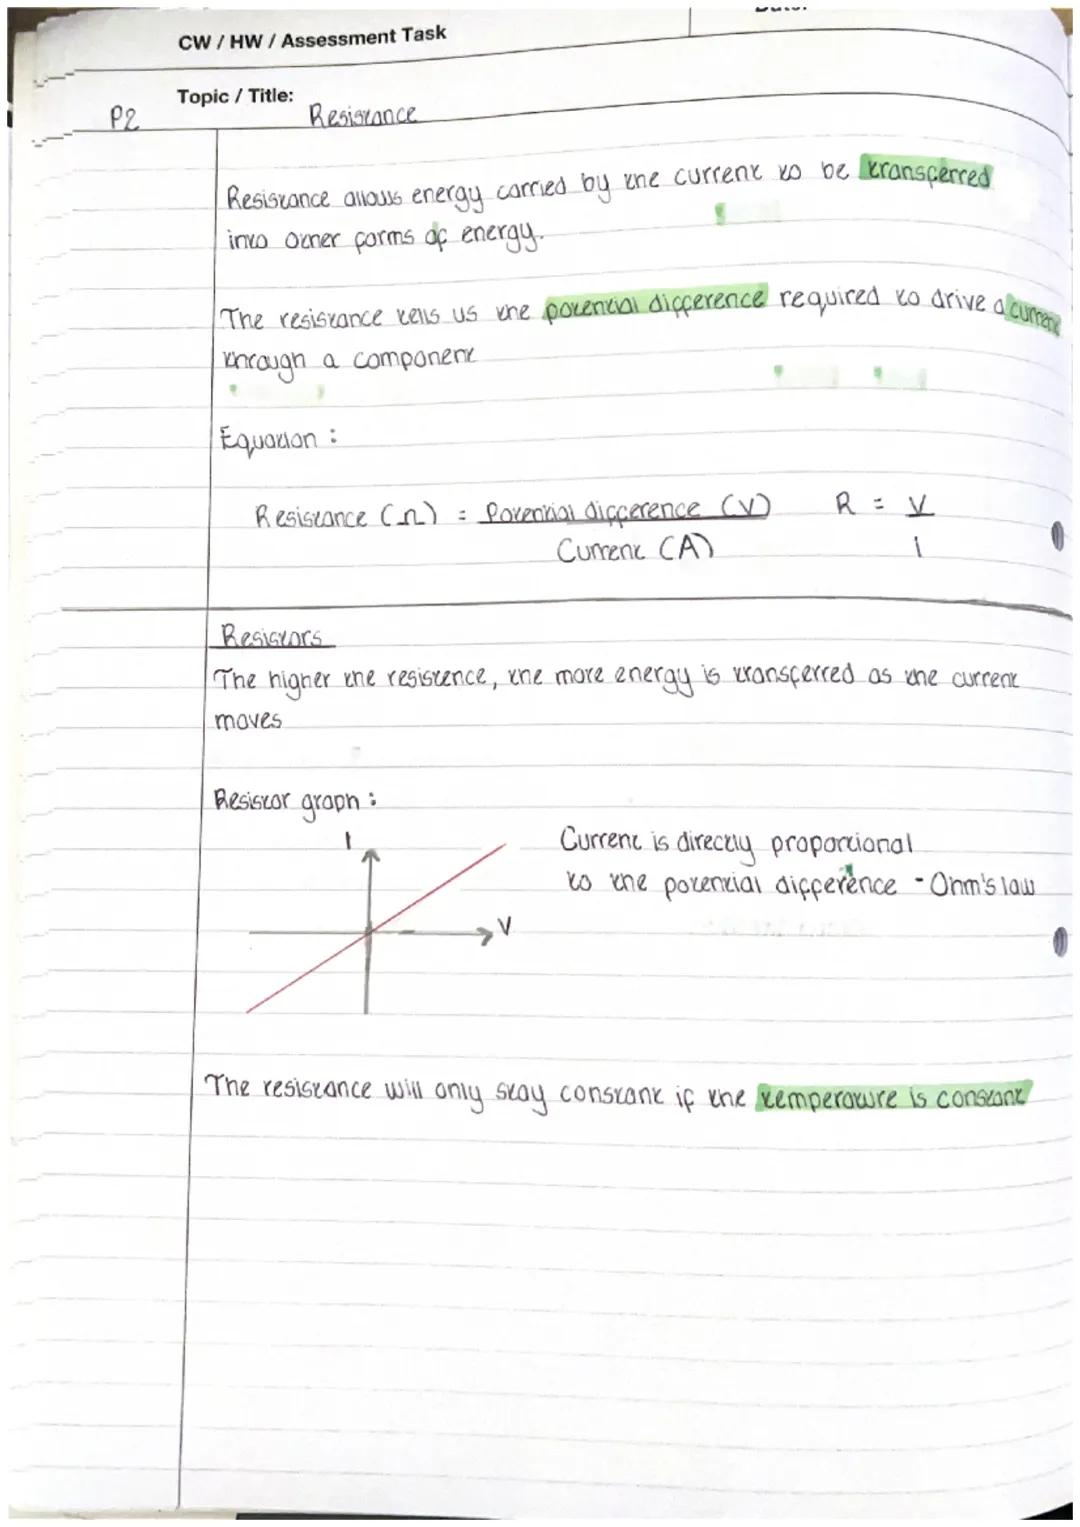 CW / HW / Assessment Task
Topic / Title:
P2 Resistance
Resistance allows energy carried by the current to be transferred
into other forms of energy.
The resistance tells us the potential difference required to drive a current
through a component
Equation :
Resistance (Ω) = Potential difference (V) R = V
Current (A) I
Resistors
The higher the resistence, the more energy is transferred as the current
moves
Resistor graph :
I
Current is directly proportional
to the potential difference - Ohm's law
V
The resistance will only stay constant if the temperature is constant